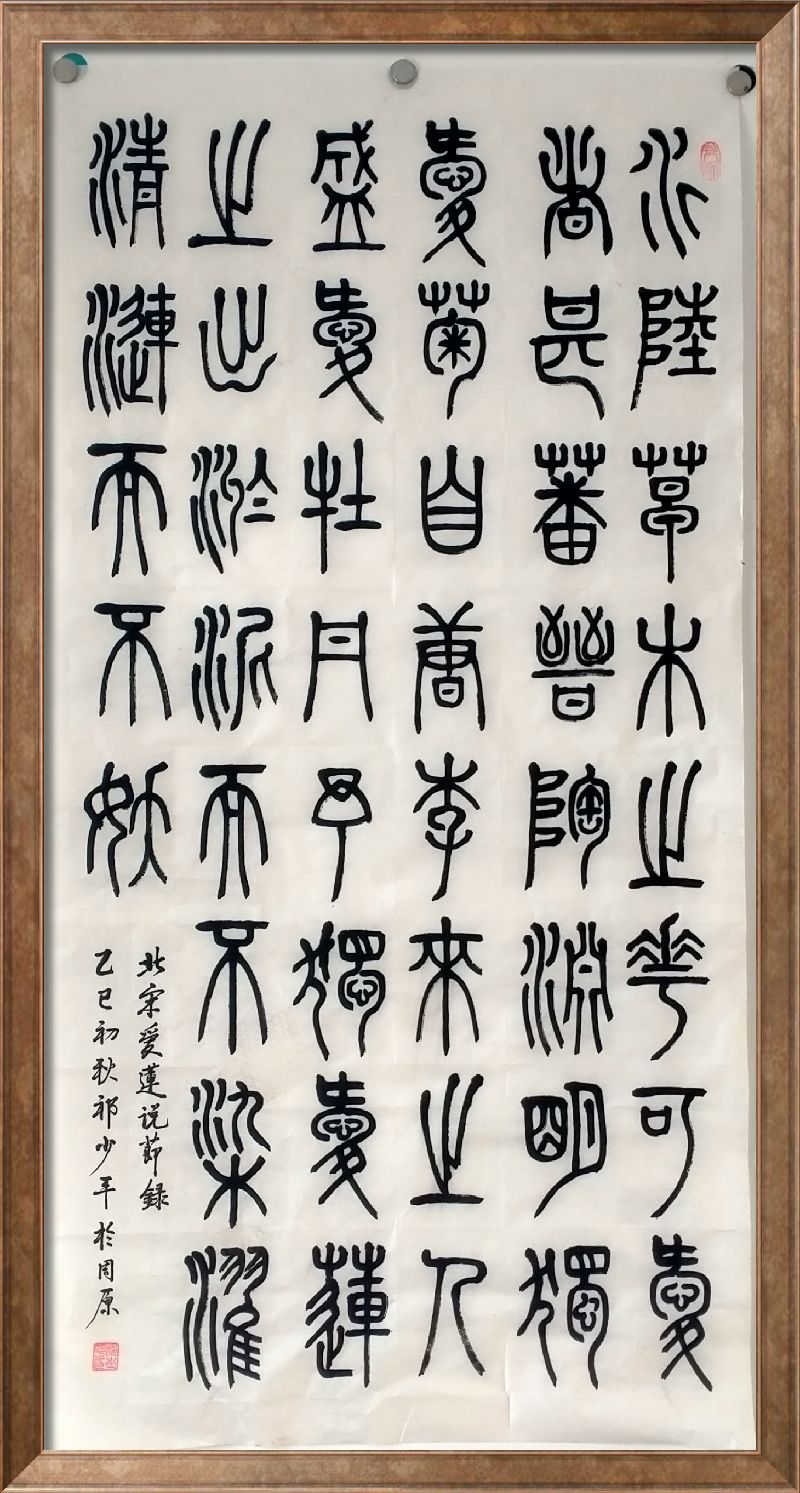 水陸草木之花可愛
者甚蕃晉陶淵明獨
愛菊自唐李來之人
盛愛牡丹予獨愛蓮
之出淤泥而不染濯
清漣而不妖
北宋愛蓮说節録
乙巳初秋祁少平於周原